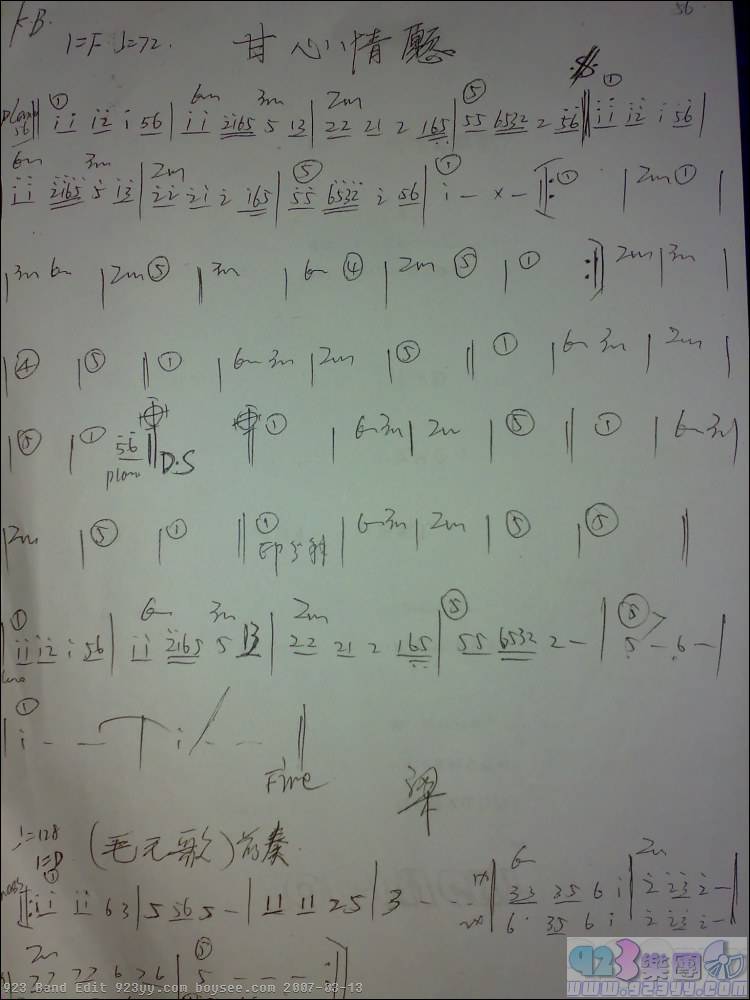 K.B. 56
1=F ♩=72. 甘心情愿
6m 3m 2m ⑤ ①
piano 56 ‖ ① i i i2 i 56 | i i 2165 5 13 | 22 21 2 165 | 55 6532 2 56 ‖ i i i2 i 56 |
6m 3m 2m ⑤ ①
i i 2165 5 13 | 22 21 2 165 | 55 6532 2 56 | i – x – ‖: ① | 2m ① |
| 3m 6m | 2m ⑤ | 3m | 6m ④ | 2m ⑤ | ① :‖ 2m | 3m |
| ④ | ⑤ ‖ ① | 6m 3m | 2m | ⑤ ‖ ① | 6m 3m | 2m |
| ⑤ | ① 56 ‖ D.S ‖ ① | 6m 3m | 2m | ⑤ ‖ ① | 6m 3m |
piano
2m | ⑤ | ① ‖ ① | 6m 3m | 2m | ⑤ | ⑤ ‖
① 6m 3m 2m ⑤ ⑤
i i i2 i 56 | i i 2165 5 13 | 22 21 2 165 | 55 6532 2 – | 5 – 6 – |
| ① i – – – | i – – ‖
Fine
♩=128
1=D (毛元歌) 前奏
① 6m 2m
‖: i i i i 6 3 | 5 56 5 – | 11 11 25 | 3 – – ‖ 33 35 6 i | 2 23 2 – |
6· 35 6 i | 2 23 2 – |
2m ⑤
22 22 6 26 | 5 – – – :‖
923 Band Edit 923yy.com boysee.com 2007-03-13
923樂團
www.923yy.com